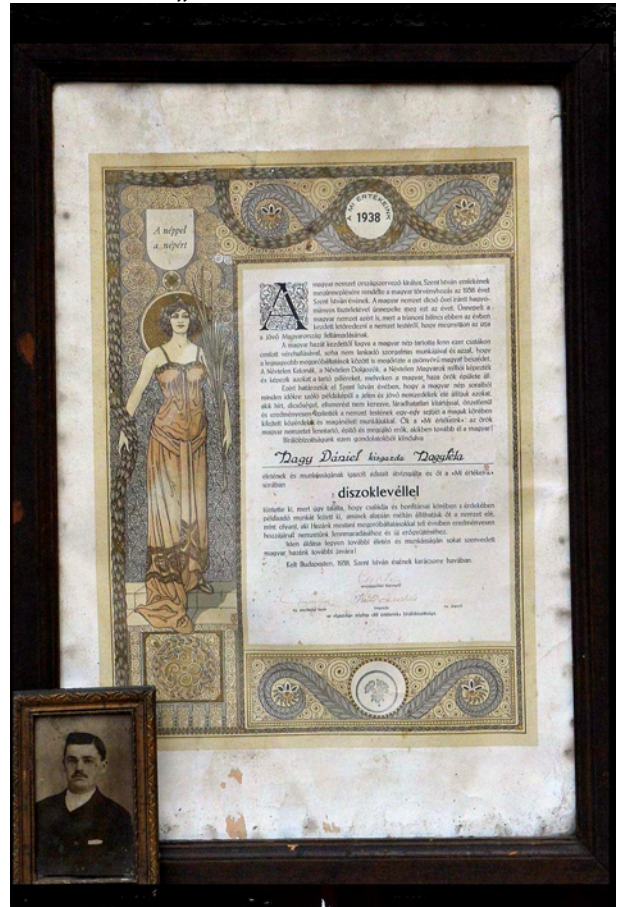 A néppel
a népért
A MI ÉRTÉKEINK
1938
A magyar nemzet országszervező királya, Szent István emlékének
megünneplésére rendelte a magyar törvényhozás az 1938. évet
Szent István évének. A magyar nemzet dicső ősei iránti hagyo-
mányos tisztelettel ünnepelte meg ezt az évet. Ünnepelt a
magyar nemzet azért is, mert a trianoni bilincs ebben az évben
kezdett letöredezni a nemzet testéről, hogy megnyíljon az útja
a jövő Magyarország feltámadásának.
A magyar hazát kezdettől fogva a magyar nép tartotta fenn ezer csatákon
ontott vérehullásával, soha nem lankadó szorgalmas munkájával és azzal, hogy
a legnagyobb megpróbáltatások között is megőrizte a gyönyörű magyar beszédet.
A Névtelen Katonák, a Névtelen Dolgozók, a Névtelen Magyarok milliói képezték
és képezik azokat a tartó pilléreket, melyeken a magyar haza örök épülete áll.
Ezért határoztuk el Szent István évében, hogy a magyar nép soraiból
minden időkre szóló példaképül a jelen és jövő nemzedékek elé állítjuk azokat,
akik hírt, dicsőséget, elismerést nem keresve, fáradhatatlan kitartással, önzetlenül
és eredményesen építették a nemzet testének egy-egy sejtjét a maguk körében
kifejtett közérdekű és magánéleti munkájukkal. Ők a «Mi értékeink» az örök
magyar nemzetet fenntartó, építő és megújító erők, akikben tovább él a magyar!
Bírálóbizottságunk ezen gondolatokból kiindulva
Nagy Dániel kisgazda Nagyléta
életének és munkásságának igazolt adatait átvizsgálta és őt a «Mi értékeink»
sorában
díszoklevéllel
tüntette ki, mert úgy találta, hogy családja és honfitársai körében s érdekében
példaadó munkát fejtett ki, aminek alapján méltán állíthatjuk őt a nemzet elé,
mint olyant, aki Hazánk mostani megpróbáltatásokkal teli évében eredményesen
hozzájárult nemzetünk fennmaradásához és új erőgyűjtéséhez.
Isten áldása legyen további életén és munkásságán sokat szenvedett
magyar hazánk további javára!
Kelt Budapesten, 1938. Szent István évének karácsony havában.